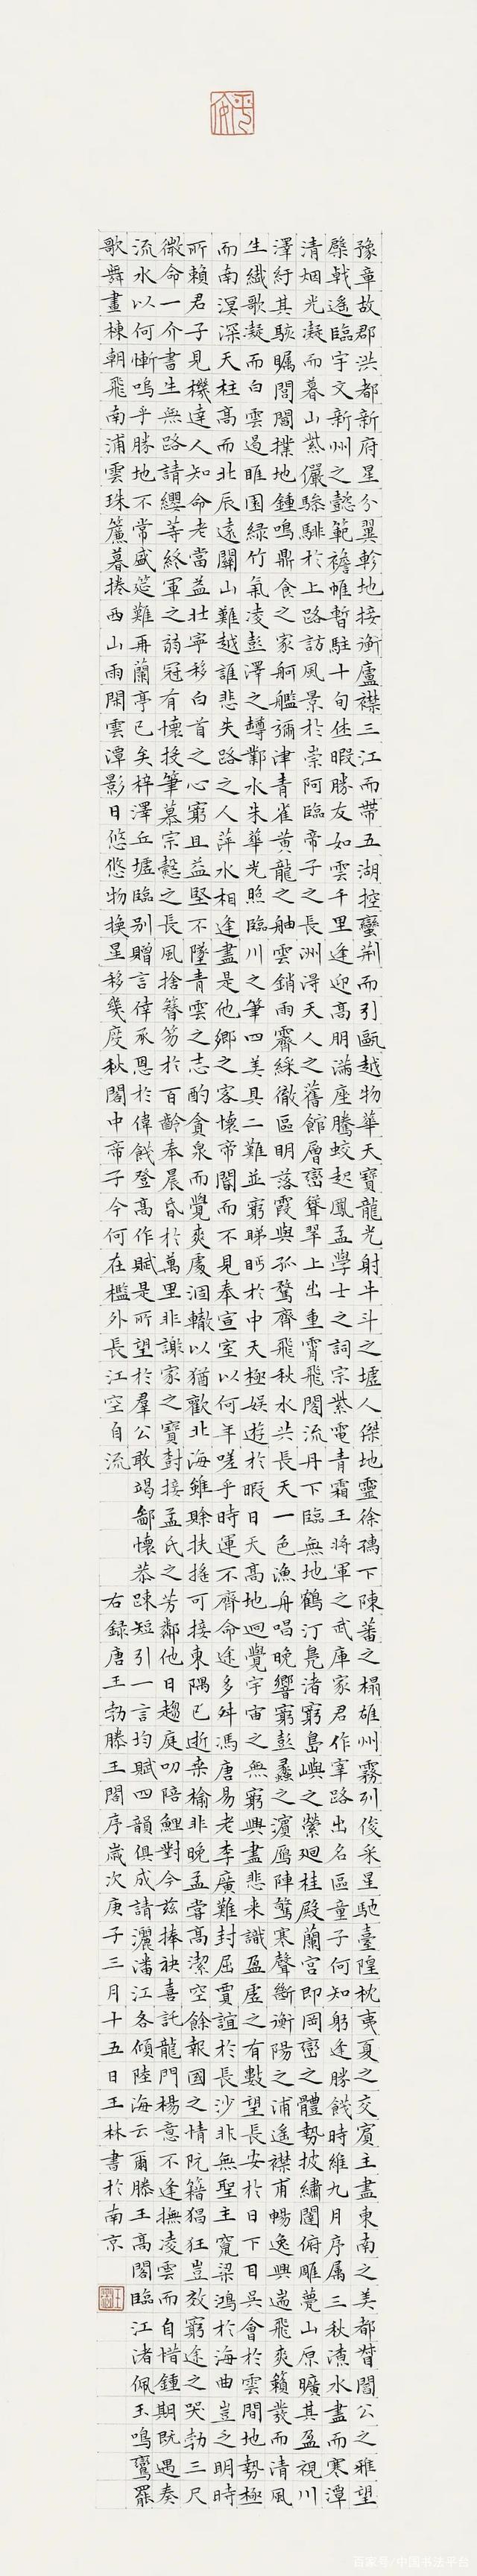 豫章故郡洪都新府星分翼軫地接衡廬襟三江而帶五湖控蠻荊而引甌越物華天寶龍光射牛斗之墟人傑地靈徐孺下陳蕃之榻雄州霧列俊采星馳臺隍枕夷夏之交賓主盡東南之美都督閻公之雅望
棨戟遙臨宇文新州之懿範襜帷暫駐十旬休暇勝友如雲千里逢迎高朋滿座騰蛟起鳳孟學士之詞宗紫電青霜王將軍之武庫家君作宰路出名區童子何知躬逢勝餞時維九月序属三秋潦水盡而寒潭
清烟光凝而暮山紫儼驂騑於上路訪風景於崇阿臨帝子之長洲得天人之舊館層巒聳翠上出重霄飛閣流丹下臨無地鶴汀鳧渚窮島嶼之縈廻桂殿蘭宮即岡巒之體勢披繡闥俯雕甍山原曠其盈視川
澤紆其駭矚閭閻撲地鍾鳴鼎食之家舸艦彌津青雀黃龍之舳雲銷雨霽綵徹區明落霞與孤鶩齊飛秋水共長天一色漁舟唱晚響窮彭蠡之濱鴈陣驚寒聲斷衡陽之浦遙襟甫暢逸興遄飛爽籟發而清風
生纖歌凝而白雲遏睢園綠竹氣凌彭澤之罇鄴水朱華光照臨川之筆四美具二難並窮睇眄於中天極娛遊於暇日天高地迥覺宇宙之無窮興盡悲来識盈虛之有數望長安於日下目吳會於雲間地勢極
而南溟深天柱高而北辰遠關山難越誰悲失路之人萍水相逢盡是他鄉之客懷帝閽而不見奉宣室以何年嗟乎時運不齊命途多舛馮唐易老李廣難封屈賈誼於長沙非無聖主竄梁鴻於海曲豈乏明時
所賴君子見機達人知命老當益壯寧移白首之心窮且益堅不墜青雲之志酌貪泉而覺爽處涸轍以猶歡北海雖賒扶搖可接東隅已逝桑榆非晚孟嘗高潔空餘報國之情阮籍猖狂豈效窮途之哭勃三尺
微命一介書生無路請纓等終軍之弱冠有懷投筆慕宗愨之長風捨簪笏於百齡奉晨昏於萬里非謝家之寶樹接孟氏之芳鄰他日趨庭叨陪鯉對今茲捧袂喜託龍門楊意不逢撫凌雲而自惜鍾期既遇奏
流水以何慚嗚乎勝地不常盛筵難再蘭亭已矣梓澤丘墟臨別贈言倖承恩於偉餞登高作賦是所望於羣公敢竭鄙懷恭踈短引一言均賦四韻俱成請灑潘江各傾陸海云爾滕王高閣臨江渚佩玉鳴鸞罷
歌舞畫棟朝飛南浦雲珠簾暮捲西山雨閑雲潭影日悠悠物換星移幾度秋閣中帝子今何在檻外長江空自流
右録唐王勃滕王閣序歲次庚子三月十五日王林書於南京
百家号/中国书法平台